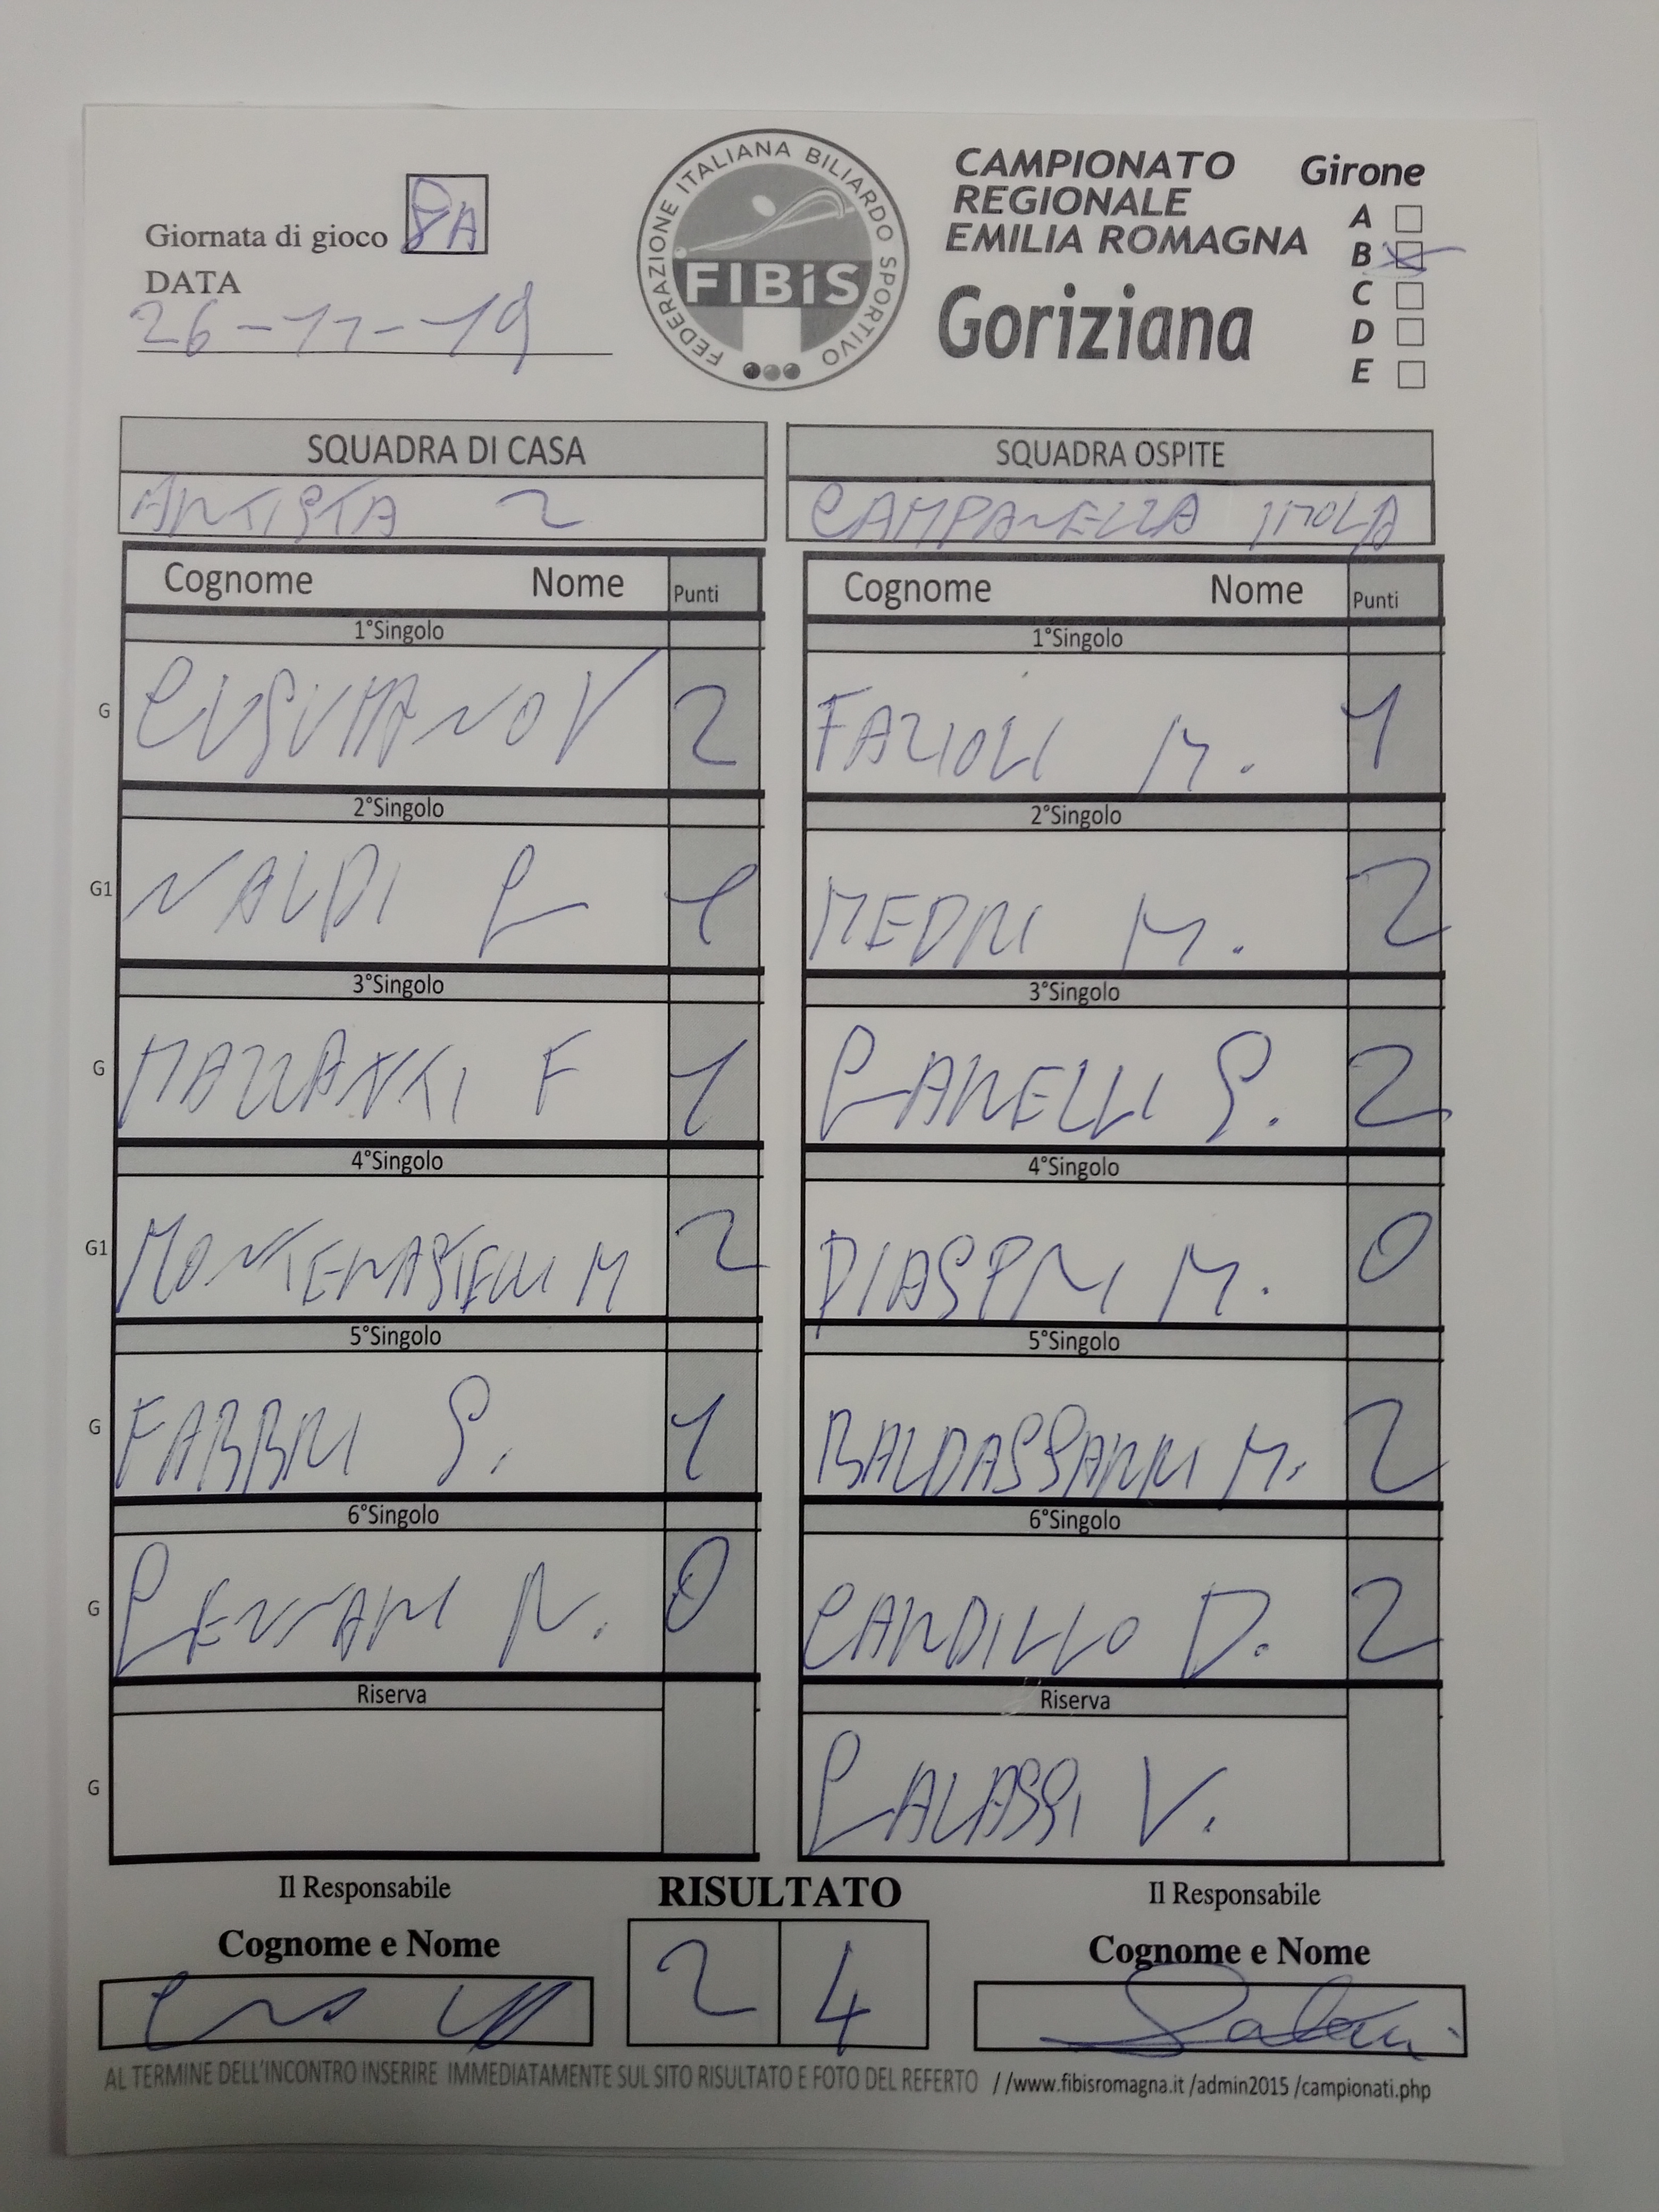 CAMPIONATO
REGIONALE
EMILIA ROMAGNA
Goriziana
Girone
A
B
C
D
E
FEDERAZIONE ITALIANA BILIARDO SPORTIVO
FIBiS
Giornata di gioco 8A
DATA
26-11-19
SQUADRA DI CASA
ARTISTA 2
SQUADRA OSPITE
CAMPANELLA IMOLA
Cognome Nome Punti
Cognome Nome Punti
1°Singolo
1°Singolo
G CUSUMANO V 2
FAZIOLI M. 1
2°Singolo
2°Singolo
G1 NALDI L 1
MEDRI M. 2
3°Singolo
3°Singolo
G MAZZANTI F 1
2
4°Singolo
4°Singolo
G1 M 2
DIASPRI M. 0
5°Singolo
5°Singolo
G FABBRI S. 1
BALDASSARRI M. 2
6°Singolo
6°Singolo
G 0
CARDILLO D. 2
Riserva
Riserva
G
GALASSI V.
Il Responsabile
RISULTATO
Il Responsabile
Cognome e Nome
2 4
Cognome e Nome
AL TERMINE DELL'INCONTRO INSERIRE IMMEDIATAMENTE SUL SITO RISULTATO E FOTO DEL REFERTO //www.fibisromagna.it /admin2015 /campionati.php